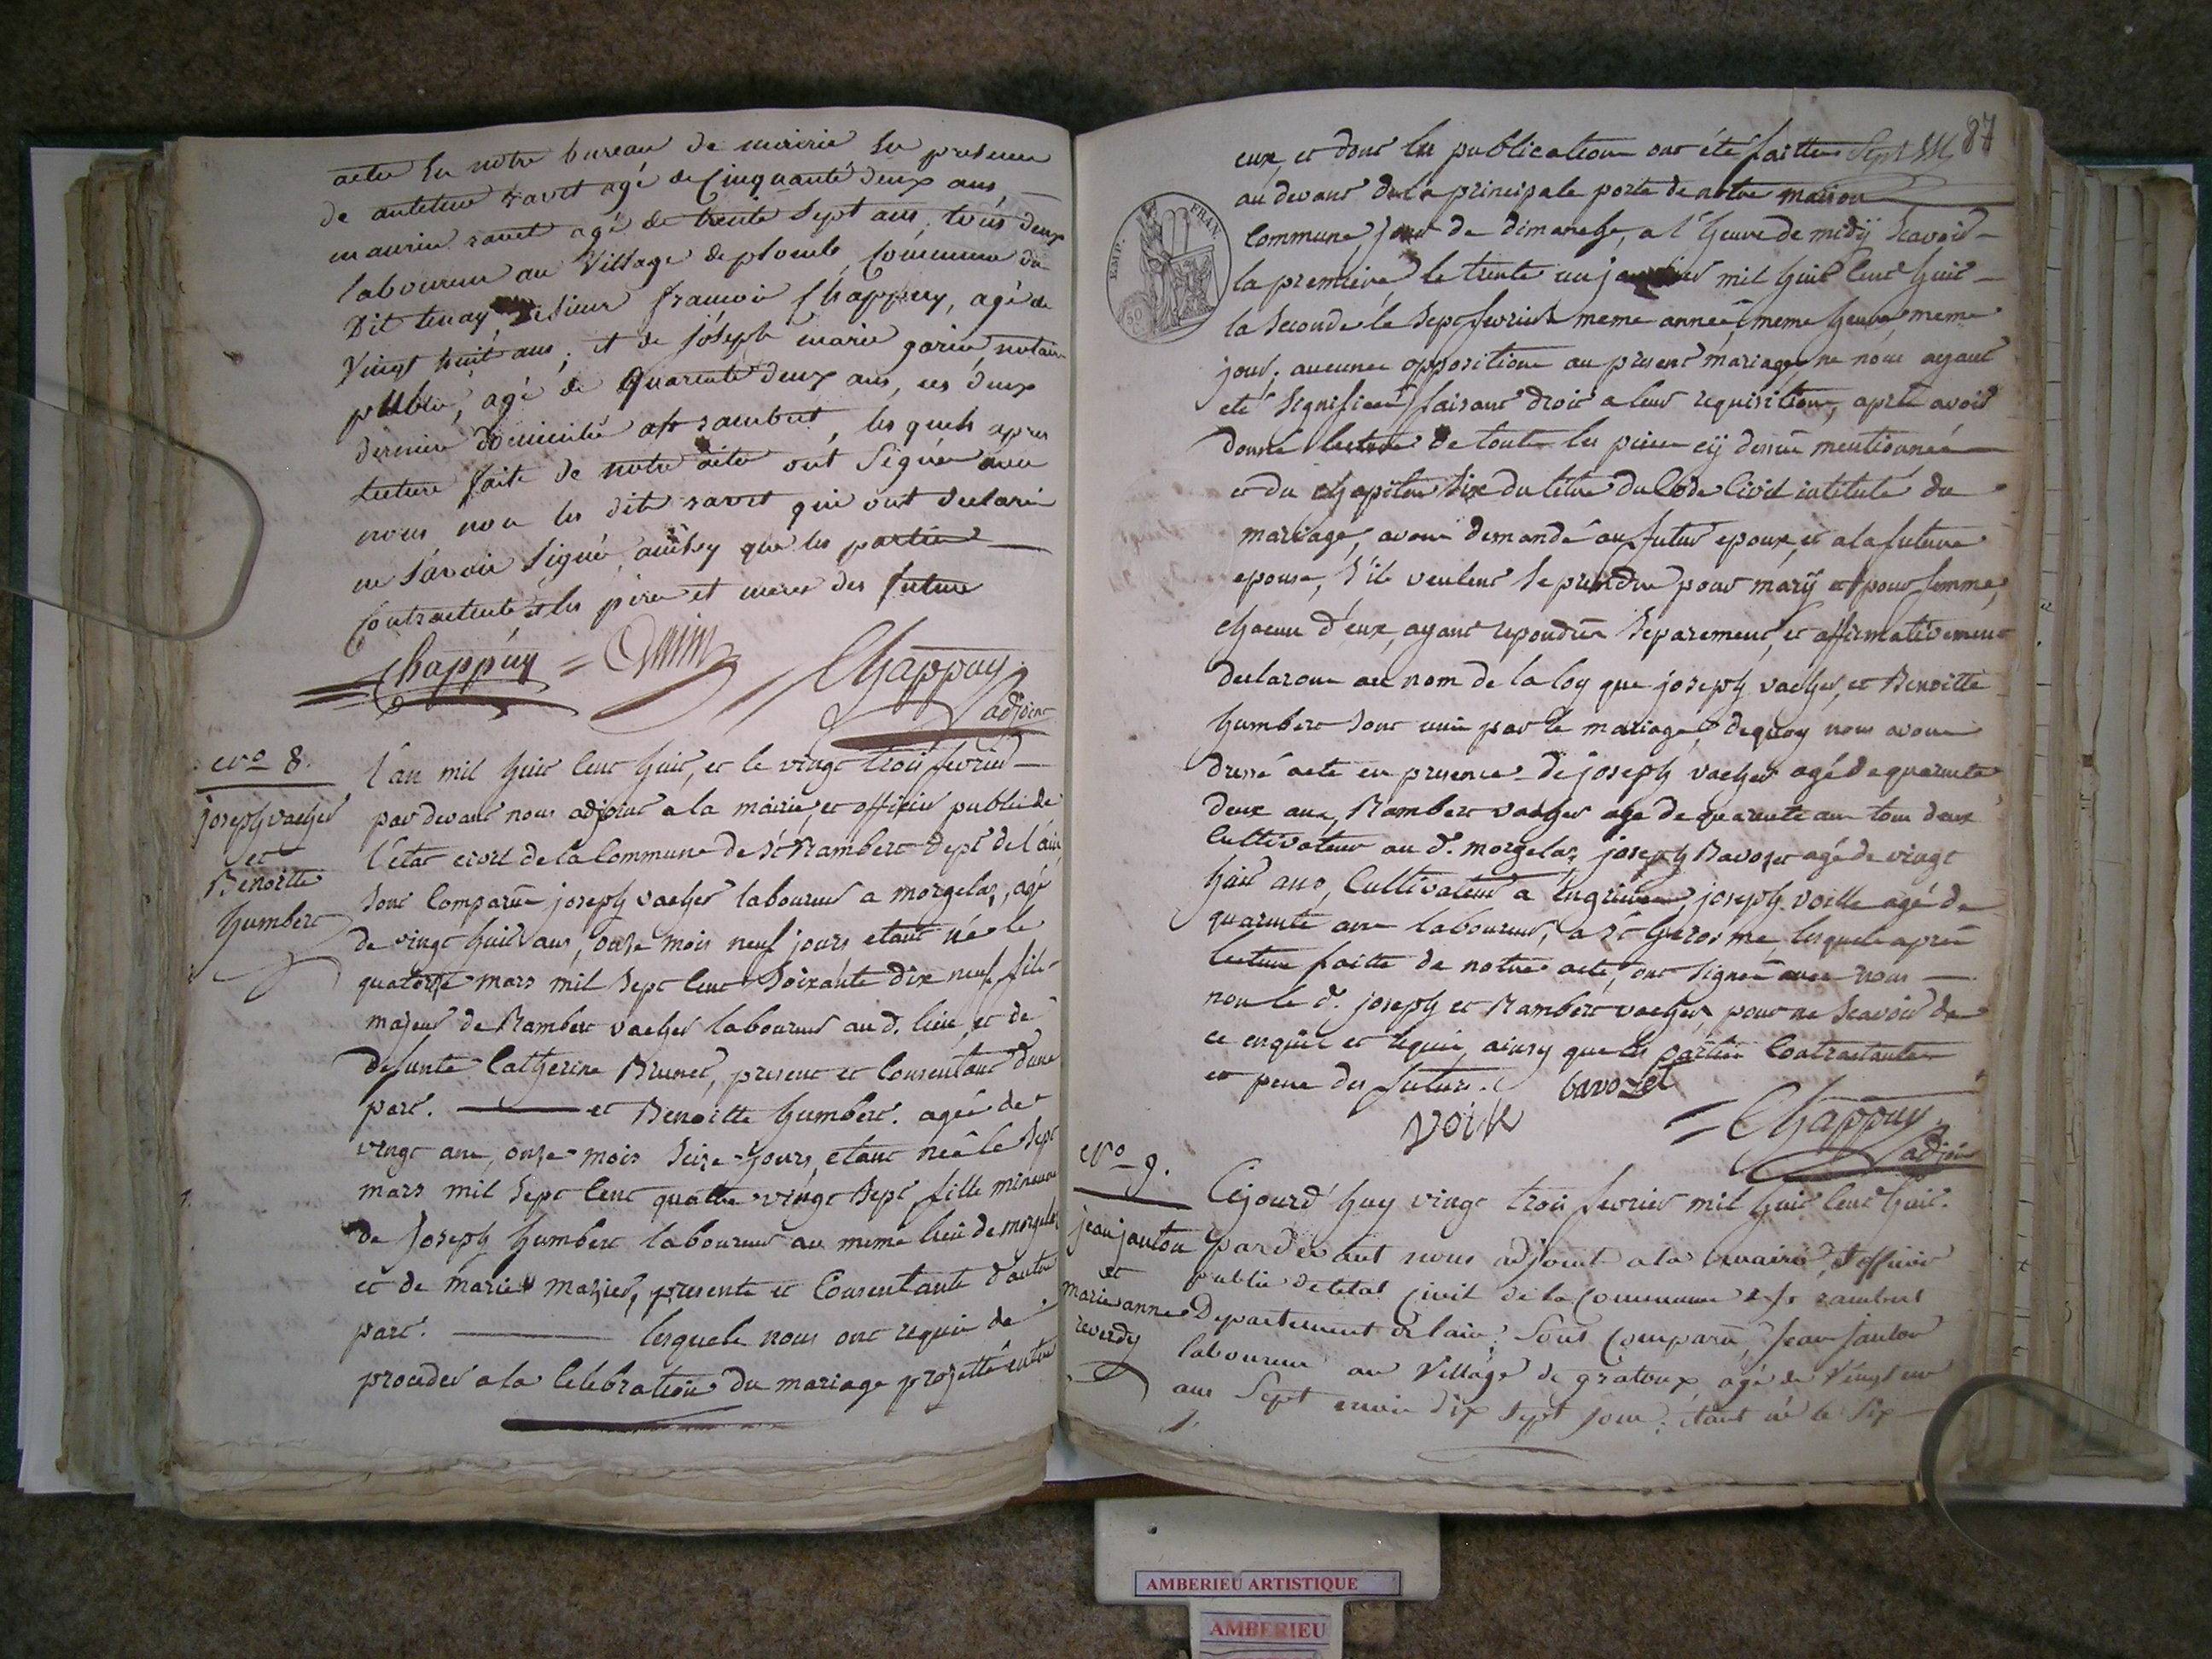 acte en notre bureau de mairie en presence
de antelme ravet agé de Cinquante deux ans
maurice ravet agé de trente Sept ans, tous deux
laboureur au Village de plomb, Commune du
Dit tenay, sieur francois Chappuy, agé de
Vingt huit ans, et de joseph marie gorin notaire
public, agé de quarente deux ans, ces deux
dernier domicilié a st rambert, les quels apres
lecture faite de notre acte ont Signé avec
nous non les dits ravet qui ont declaré
ne Savoir Signé, ainsy que les parties
Contractente et les pere et meres des future
Chappuy
Chappuy
adjoint
Nro 8.
joseph vacher
et
Benoitte
humbert
l'an mil huit Cent huit, et le vingt trois fevrier
par devant nous adjoint a la mairie, et officier public de
l'etat civil de la Commune de St Rambert Dept de l'ain
sont Comparu joseph vacher laboureur a morgelaz, agé
de vingt huit ans, onze mois neuf jours etant né le
quatorze mars mil Sept Cent Soixante dix neuf fils
majeur de Rambert vacher laboureur aud. lieu, et de
defunte Catherine Brunet, present et Consentant d'une
part. et Benoitte humbert. agée de
vingt ans, onze mois Seize jours, etant née le Sept
mars mil Sept Cent quatre vingt Sept fille mineure
de Joseph humbert laboureur au meme lieu de morgelaz
et de marie mazier, presente et Consentante d'autre
part. lesquels nous ont requis de
proceder a la Celebration du mariage projetté entre
87
EMP. FRAN
50
eux, et dont les publications ont été faittes
au devant de la principale porte de notre maison
Commune, jour de dimanche, a l'heure de midÿ Scavoir
la premiere le trente un janvier mil huit Cent huit
la Seconde le Sept fevrier meme année meme heure meme
jour, aucunes oppositions au present mariage ne nous ayant
eté Signifiées, faisant droit a leur requisition, aprés avoir
donné lecture de toute les pieces cÿ dessus mentionnée
et du Chapitre Six du titre du Code Civil intitulé du
mariage, avons demandé au futur epoux, et a la future
epouse, S'ils veulent Se prendre pour marÿ et pour femme,
chacun d'eux, ayant repondu Separement, et affirmativement
declarons au nom de la loy que joseph vacher, et Benoitte
humbert sont unis par le mariage, dequoy nous avons
dressé acte en presence de joseph vacher agé de quarante
deux ans, Rambert vacher agé de quarante ans tous deux
Cultivateur au d. morgelaz, joseph Bavozet agé de vingt
huit ans, Cultivateur a Engrieux, joseph voille agé de
quarante ans laboureur, a St herosme, lesquels aprés
lecture faitte de notre acte, ont Signé avec nous
non le d. joseph et Rambert vacher pour ne Scavoir de
ce enquis et requis, ainsy que les parties Contractantes
et pere des futurs.
bavozet
Chappuy
adjoint
Nro 9.
jean jantou
et
marie anne
reverdy
Cejourd'huy vingt trois fevrier mil huit Cent huit.
pardevant nous adjoint a la mairie, et officier
public de l'etat Civil de la Commune de St rambert
Departement de l'ain; Sont Comparu, Jean Jantou
laboureur au Village de gratoux, agé de Vingt un
ans Sept mois dix Sept jour; etant né le Six
AMBERIEU ARTISTIQUE
AMBERIEU